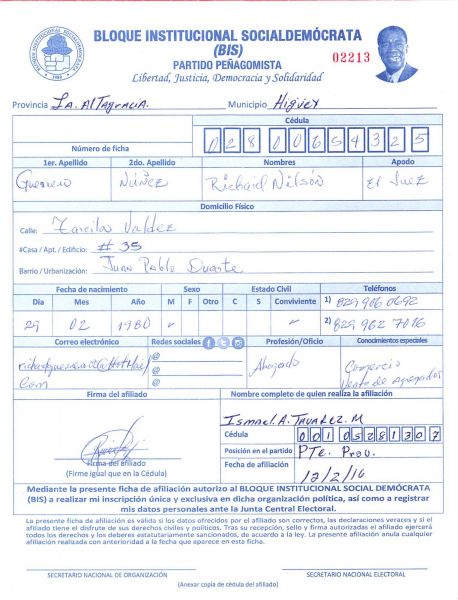 BLOQUE INSTITUCIONAL SOCIALDEMÓCRATA
(BIS)
PARTIDO PEÑAGOMISTA
Libertad, Justicia, Democracia y Solidaridad
02213
Provincia La Altagracia. Municipio Higüey
Cédula
Número de ficha 028 0065432 5
1er. Apellido 2do. Apellido Nombres Apodo
Guerrero Núñez Richard Nilsón El Juez
Domicilio Físico
Calle: Zarcilas Valdez
#Casa / Apt. / Edificio: # 35
Barrio / Urbanización: Juan Pablo Duarte
Fecha de nacimiento Sexo Estado Civil Teléfonos
Día Mes Año M F Otro C S Conviviente 1) 829 906 0692
29 02 1980 ✓ ✓ 2) 829 962 7016
Correo electrónico Redes sociales Profesión/Oficio Conocimientos especiales
@ Abogado Comercio
@ Venta de
com @
Firma del afiliado Nombre completo de quien realiza la afiliación
Ismael A. Tavarez. M
Cédula 001 0528130 7
Firma del afiliado Posición en el partido Pte. Prov.
(Firme igual que en la Cédula) Fecha de afiliación 12/2/16
Mediante la presente ficha de afiliación autorizo al BLOQUE INSTITUCIONAL SOCIAL DEMÓCRATA
(BIS) a realizar mi inscripción única y exclusiva en dicha organización política, así como a registrar
mis datos personales ante la Junta Central Electoral.
La presente ficha de afiliación es válida si los datos ofrecidos por el afiliado son correctos, las declaraciones veraces y si el
afiliado tiene el disfrute de sus derechos civiles y políticos. Tras su recepción, sello y firma autorizadas el afiliado ejercerá
todos los derechos y los deberes estatutariamente sancionados, de acuerdo a la ley. La presente afiliación anula cualquier
afiliación realizada con anterioridad a la fecha que aparece en esta ficha.
SECRETARIO NACIONAL DE ORGANIZACIÓN SECRETARIO NACIONAL ELECTORAL
(Anexar copia de cédula del afiliado)